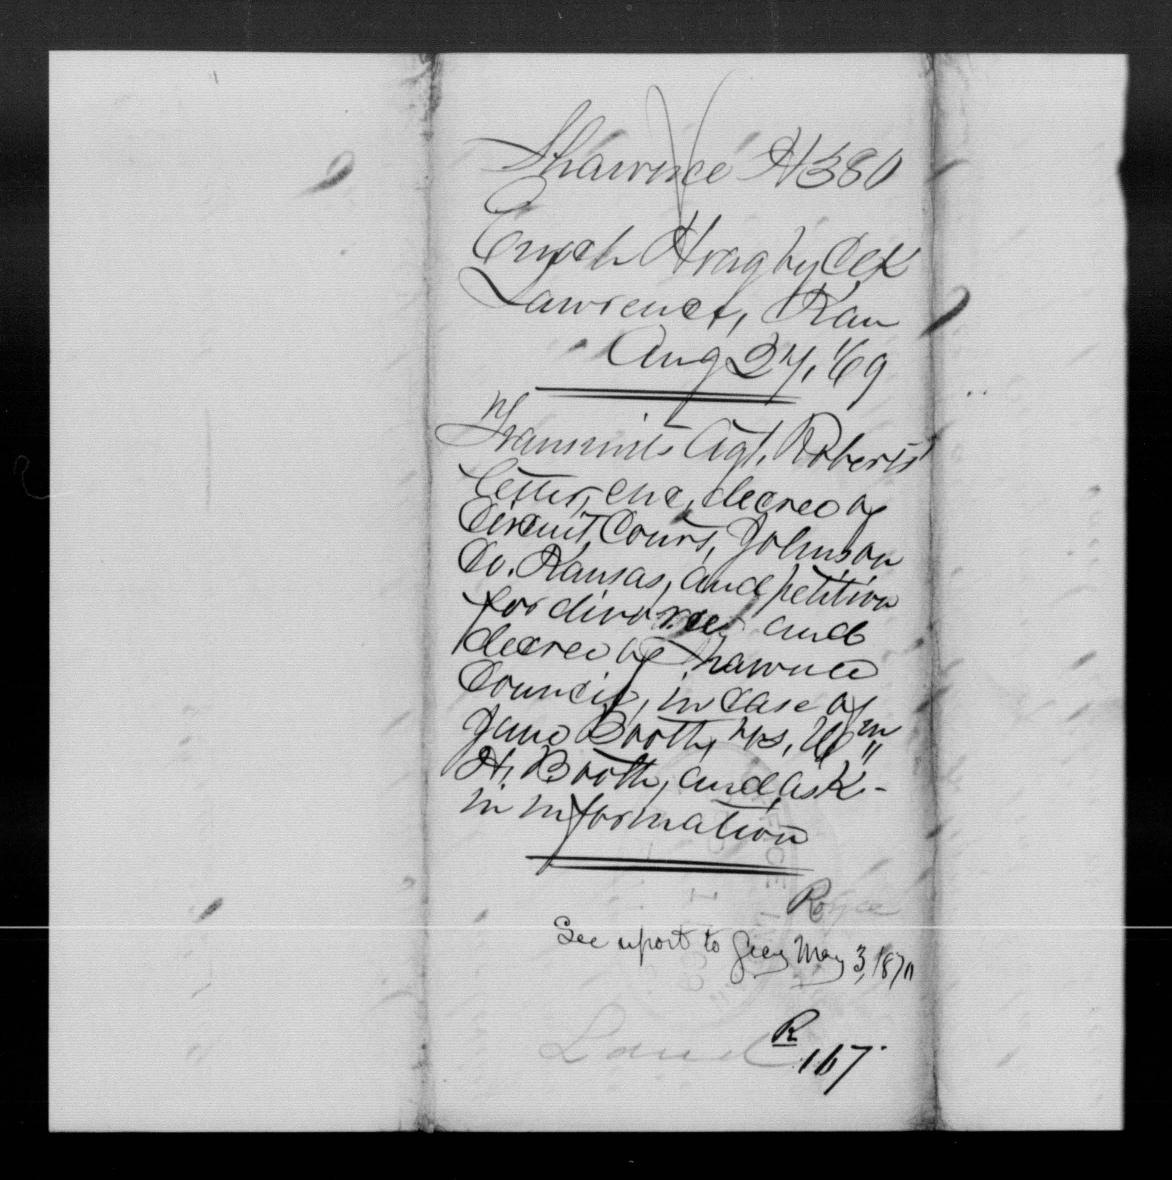 Shawnee H380
Enoch Hoag by Clk
Lawrence, Kan
Aug 27, '69
Transmits Agt. Roberts'
letter, enc, decree of
Circuit Court, Johnson
Co. Kansas, and petition
for divorce, and
decree of Shawnee
Council, in case of
Jane Booth, vs, Wm
H. Booth, and ask-
in information
Royce
See report to Secy May 3, 1870
R
Land 167